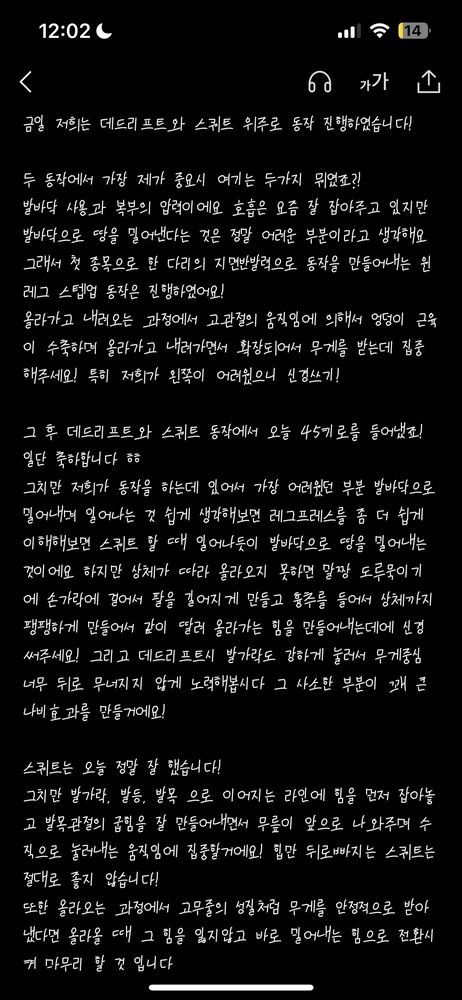 12:02
14
가가
금일 저희는 데드리프트와 스쿼트 위주로 동작 진행하였습니다!
두 동작에서 가장 제가 중요시 여기는 두가지 뭐였죠?!
발바닥 사용과 복부의 압력이에요 호흡은 요즘 잘 잡아주고 있지만
발바닥으로 땅을 밀어낸다는 것은 정말 어려운 부분이라고 생각해요
그래서 첫 종목으로 한 다리의 지면반발력으로 동작을 만들어내는 원
레그 스텝업 동작은 진행하였어요!
올라가고 내려오는 과정에서 고관절의 움직임에 의해서 엉덩이 근육
이 수축하며 올라가고 내려가면서 확장되어서 무게를 받는데 집중
해주세요! 특히 저희가 왼쪽이 어려웠으니 신경쓰기!
그 후 데드리프트와 스쿼트 동작에서 오늘 45키로를 들어냈죠!
일단 축하합니다 ㅎㅎ
그치만 저희가 동작을 하는데 있어서 가장 어려웠던 부분 발바닥으로
밀어내며 일어나는 것 쉽게 생각해보면 레그프레스를 좀 더 쉽게
이해해보면 스쿼트 할 때 일어나듯이 발바닥으로 땅을 밀어내는
것이에요 하지만 상체가 따라 올라오지 못하면 말짱 도루묵이기
에 손가락에 걸어서 팔을 길어지게 만들고 흉추를 들어서 상체까지
팽팽하게 만들어서 같이 딸려 올라가는 힘을 만들어내는데에 신경
써주세요! 그리고 데드리프트시 발가락도 강하게 눌러서 무게중심
너무 뒤로 무너지지 않게 노력해봅시다 그 사소한 부분이 꽤 큰
나비효과를 만들거에요!
스쿼트는 오늘 정말 잘 했습니다!
그치만 발가락, 발등, 발목 으로 이어지는 라인에 힘을 먼저 잡아놓
고 발목관절의 굽힘을 잘 만들어내면서 무릎이 앞으로 나와주며 수
직으로 눌러내는 움직임에 집중할거에요! 힙만 뒤로빠지는 스쿼트는
절대로 좋지 않습니다!
또한 올라오는 과정에서 고무줄의 성질처럼 무게를 안정적으로 받아
냈다면 올라올 때 그 힘을 잃지않고 바로 밀어내는 힘으로 전환시
켜 마무리 할 것 입니다